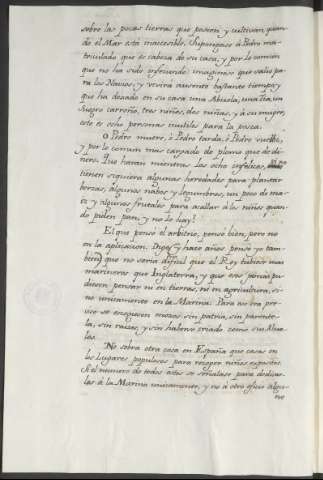 sobre las pocas tierras que poseen y cultivan, quan-
do el Mar está inaccesible. Supongase à Pedro ma-
triculado que es cabeza de su casa, y por lo comun
que no ha sido infecundo: imaginese que salió pa-
ra los Navios, y vivirá ausente bastante tiempo; y
que ha dexado en su casa una Abuela, una tia, un
suegro carroño, tres niños, dos niñas, y à su muger,
este es ocho personas inutiles para la pesca.
O Pedro muere, ò Pedro tarda, ò Pedro vuelve,
y por lo comun mas cargado de plomo que de di-
nero. Que haran mientras las ocho infelices, no
tienen siquiera algunas heredades para plantar
berzas, algunos nabos y legumbres, un poco de ma-
iz y algunos frutales para acallar à los niños quan-
do piden pan, y no lo hay?
El que pensó el arbitrio, pensó bien, pero no
en la aplicacion. Dixe (y hace años pense yo tam-
bien) que no seria dificil que el Rey tubiese mas
marineros que Inglaterra, y que esos jamas pu-
diesen pensar ni en tierras, ni en agricultura, si-
no unicamente en la Marina. Para ahora pre-
ciso se busquen mozos sin patria, sin parente-
la, sin raizes, y sin haberse criado como sin Abue-
las.
No sobra otra cosa en España que casas en
los Lugares populosos para recoger niños expositos.
Si el numero de todos estos se señalase para dedicar-
las à la Marina unicamente, y no à otro oficio algu-
no